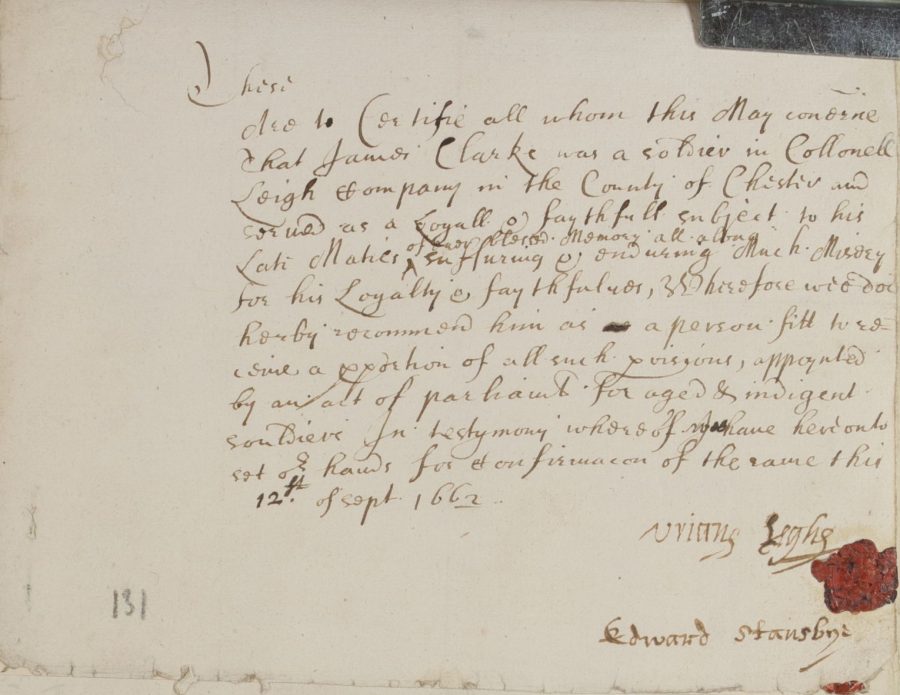 These
Are to Certifie all whom this May conserne
That James Clarke was a soldier in Collonell
Leigh Company in the County of Chester and
served as a Loyall & faythfull subject to his
of ever blesed Memory all along
Late Maties ^ suffuring & enduring Much Misery
for his Loyalty & faythfulnes, Wherefore wee doe
herby recommend him as a person fitt to re=
ceive a pportion of all such pvisions, appoynted
by an act of parliamt for aged & indigent
souldiers In testymony whereof we have hereonto
set or hands for Confirmacon of the same this
12th of sept 1662
Vriane Leghe
Edward Stansbye
131